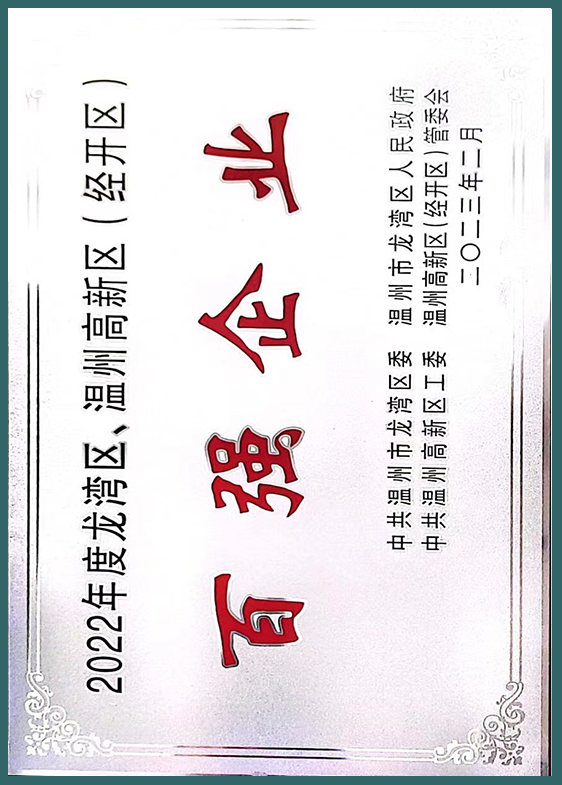 2022年度龙湾区、温州高新区(经开区)
百强企业
中共温州市龙湾区委 温州市龙湾区人民政府
中共温州高新区工委 温州高新区(经开区)管委会
二〇二三年二月